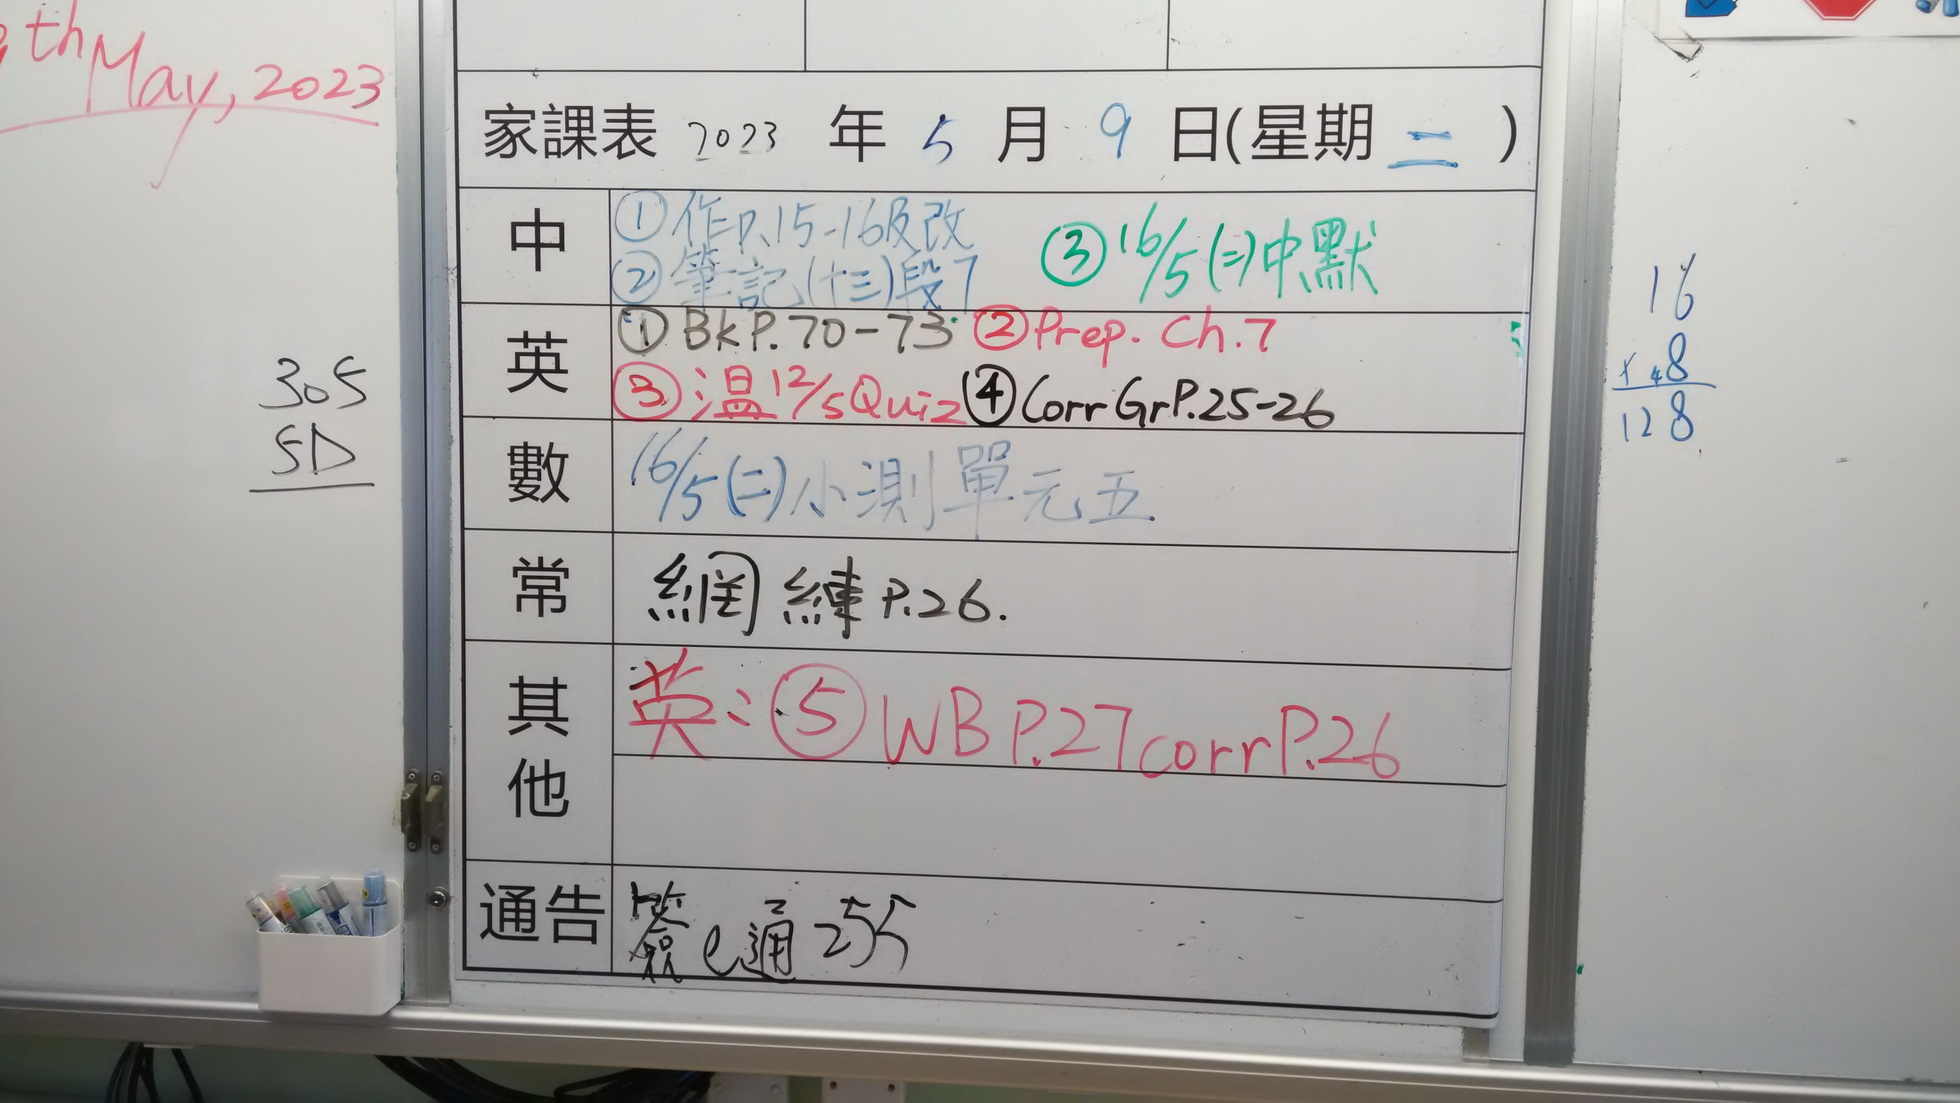 th May, 2023
家課表 2023 年 5 月 9 日(星期 二 )
中
① 作P.15-16及改
② 筆記(十三)段7
③ 16/5(二)中默
英
① BkP.70-73 ② Prep. Ch.7
③ 溫12/5Quiz ④ Corr GrP.25-26
數
16/5(二)小測單元五
常
網練P.26.
其他
英: ⑤ WB P.27 corrP.26
通告
簽e通255
305
5D
16
x 48
128